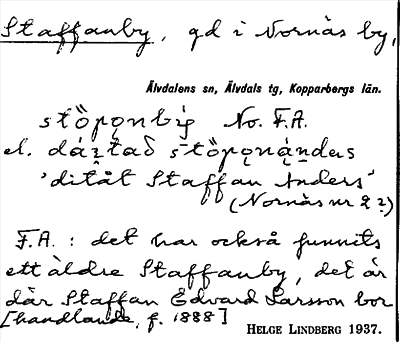 Staffanby, gd i Nornäs by,
Älvdalens sn, Älvdals tg, Kopparbergs län.
stöpo̧nbì̯ No. F.A.
el. dáʒ̣tað stöpo̧ną́ndas
'ditåt Staffan Anders'
(Nornäs nr 2 ?)
F.A. : det har också funnits
ett äldre Staffanby, det är
där Staffan Edvard Larsson bor
[handlande, f. 1888]
HELGE LINDBERG 1937.